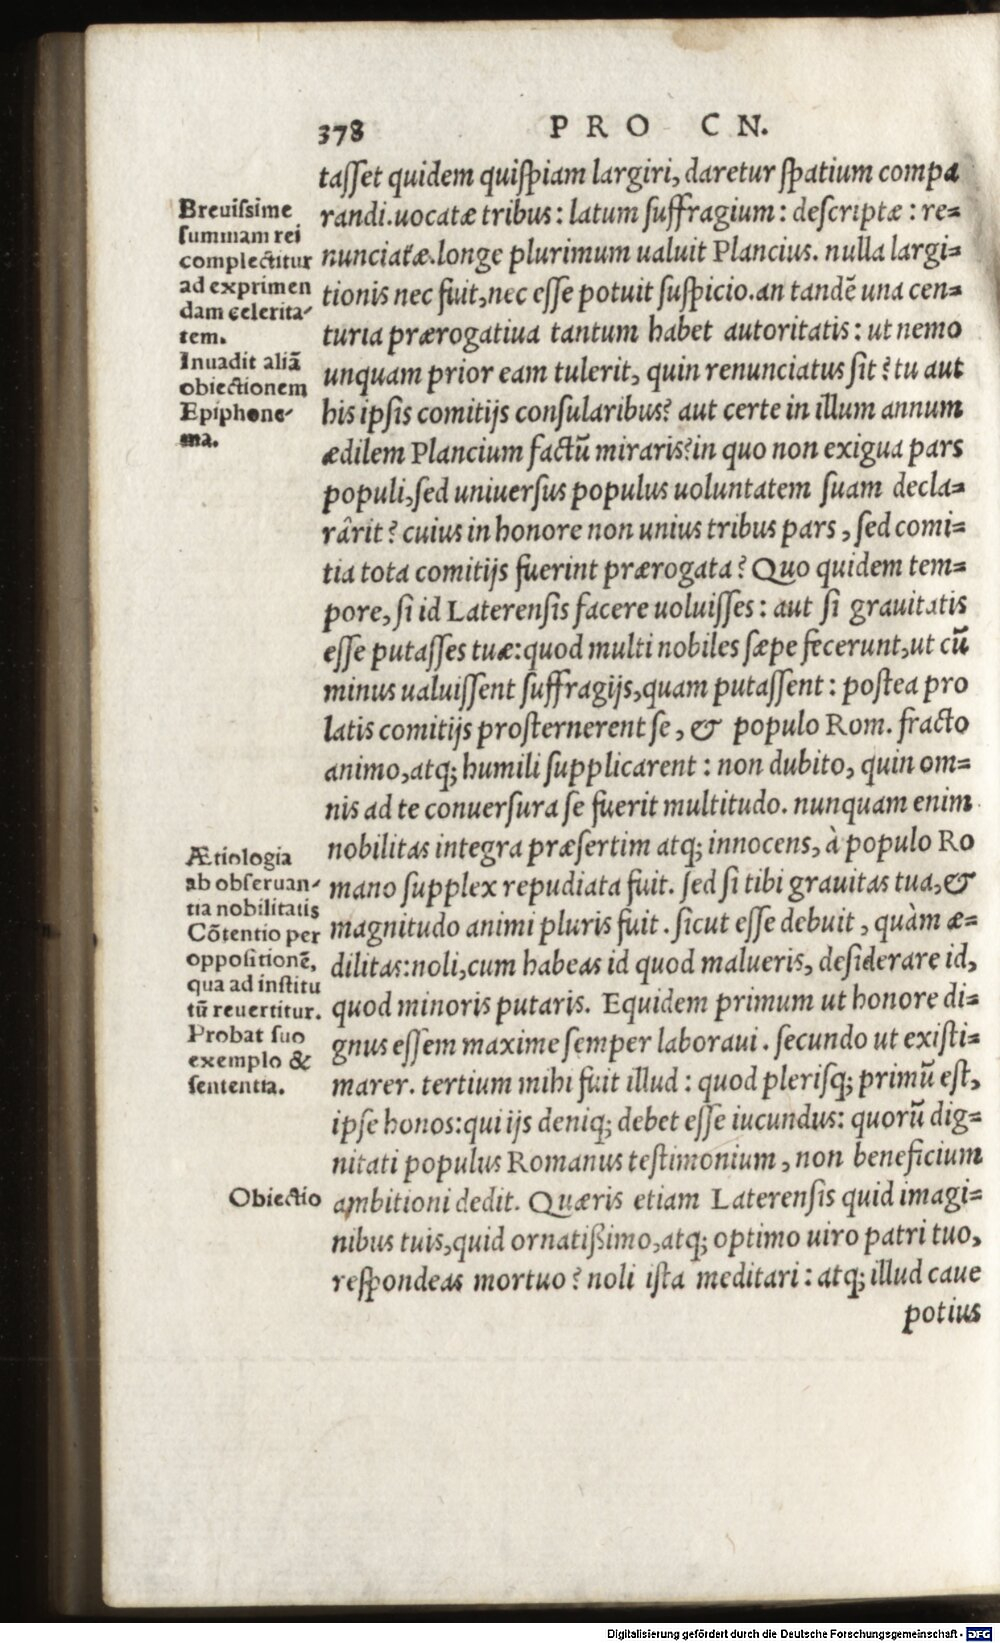 378 PRO CN.
tasset quidem quispiam largiri, daretur spatium compa
randi. uocatæ tribus: latum suffragium: descriptæ: re=
nunciatæ. longe plurimum ualuit Plancius. nulla largi=
tionis nec fuit, nec esse potuit suspicio. an tandē una cen=
turia prærogatiua tantum habet autoritatis: ut nemo
unquam prior eam tulerit, quin renunciatus sit? tu aut
his ipsis comitijs consularibus? aut certe in illum annum
ædilem Plancium factū miraris? in quo non exigua pars
populi, sed uniuersus populus uoluntatem suam decla=
rârit? cuius in honore non unius tribus pars, sed comi=
tia tota comitijs fuerint prærogata? Quo quidem tem=
pore, si id Laterensis facere uoluisses: aut si grauitatis
esse putasses tuæ: quod multi nobiles sæpe fecerunt, ut cū
minus ualuissent suffragijs, quam putassent: postea pro
latis comitijs prosternerent se, & populo Rom. fracto
animo, atq; humili supplicarent: non dubito, quin om=
nis ad te conuersura se fuerit multitudo. nunquam enim
nobilitas integra præsertim atq; innocens, à populo Ro
mano supplex repudiata fuit. sed si tibi grauitas tua, &
magnitudo animi pluris fuit. sicut esse debuit, quàm æ=
dilitas: noli, cum habeas id quod malueris, desiderare id,
quod minoris putaris. Equidem primum ut honore di=
gnus essem maxime semper laboraui. secundo ut existi=
marer. tertium mihi fuit illud: quod plerisq; primū est,
ipse honos: qui ijs deniq; debet esse iucundus: quorū dig=
nitati populus Romanus testimonium, non beneficium
ambitioni dedit. Quæris etiam Laterensis quid imagi=
nibus tuis, quid ornatißimo, atq; optimo uiro patri tuo,
respondeas mortuo? noli ista meditari: atq; illud caue
potius
Breuissime
summam rei
complectitur
ad exprimen
dam celerita-
tem.
Inuadit aliā
obiectionem
Epiphone-
ma.
Ætiologia
ab obseruan-
tia nobilitatis
Cōtentio per
oppositionē,
qua ad institu
tū reuertitur.
Probat suo
exemplo &
sententia.
Obiectio
Digitalisierung gefördert durch die Deutsche Forschungsgemeinschaft - DFG